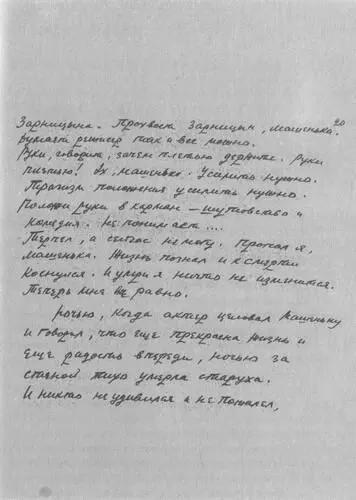 20
Зарницына. Прохвост Зарницын, Машенька.
решил так и все можно.
Руки, говорит, зачем плетью держите. Руки
плетью! Ох, Машенька. Усилить нужно.
Трагизм положения усилить нужно.
Положи руки в карман — шутовство и
комедия. Не понимает....
Терпел, а сейчас не могу. Пропал я,
Машенька. Жизнь познал и к смерти
коснулся. И умри я ничто не изменится.
Теперь мне все равно.
Ночью, когда актер целовал Машеньку
и говорил, что еще прекрасна жизнь и
еще радость впереди, ночью за
стеной тихо умерла старуха.
И никто не удивился и не пожалел,